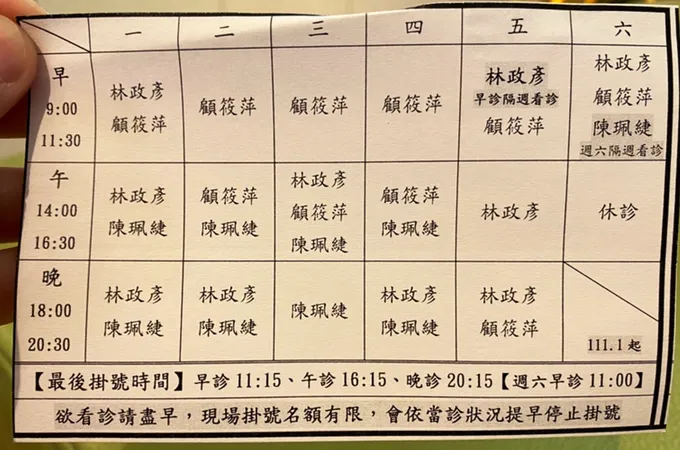 一 二 三 四 五 六
早 9:00 11:30
林政彥 顧筱萍
顧筱萍
顧筱萍
顧筱萍
林政彥 早診隔週看診 顧筱萍
林政彥 顧筱萍 陳珮緁 週六隔週看診
午 14:00 16:30
林政彥 陳珮緁
顧筱萍 陳珮緁
林政彥 顧筱萍 陳珮緁
顧筱萍 陳珮緁
林政彥
休診
晚 18:00 20:30
林政彥 陳珮緁
林政彥 陳珮緁
陳珮緁
林政彥 陳珮緁
林政彥 顧筱萍
111.1起
【最後掛號時間】早診11:15、午診16:15、晚診20:15【週六早診11:00】
欲看診請盡早，現場掛號名額有限，會依當診狀況提早停止掛號